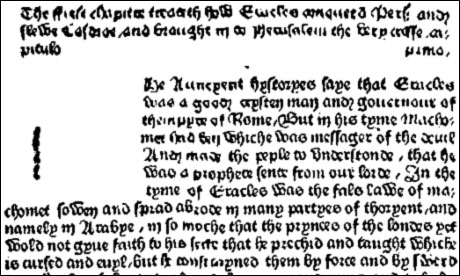 The firste chapitre treateth how Eracles conquerd Perse and
slewe Cosdroe, and brought in to Jherusalem the very crosse, ca-
pitulo primo.
The Auncyent hystoryes saye that Eracles
was a good crysten man and gouernour of
thempyre of Rome, But in his tyme Macho-
met had ben whiche was messager of the deuil
And made the peple to vnderstonde, that he
was a prophete sente from our lorde, In the
tyme of Eracles was the fals lawe of ma-
chomet sowen and sprad abrode in many partyes of thoryent, and
namely in Arabye, in so moche that the prynces of the londes yet
wold not gyue faith to his secte that he prechid and taught whiche
is cursed and euyl, but he constrayned them by force and by swerd